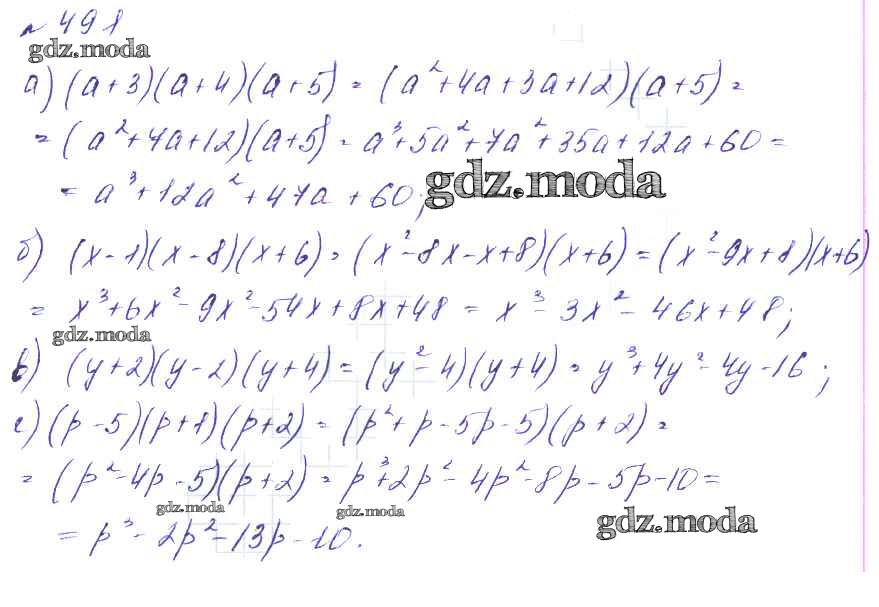 № 491
gdz.moda
а) (a+3)(a+4)(a+5) = (a²+4a+3a+12)(a+5) =
= (a²+7a+12)(a+5) = a³+5a²+7a²+35a+12a+60 =
= a³+12a²+47a+60;
gdz.moda
б) (x-1)(x-8)(x+6) = (x²-8x-x+8)(x+6) = (x²-9x+8)(x+6)
= x³+6x²-9x²-54x+8x+48 = x³-3x²-46x+48;
gdz.moda
в) (y+2)(y-2)(y+4) = (y²-4)(y+4) = y³+4y²-4y-16;
г) (p-5)(p+1)(p+2) = (p²+p-5p-5)(p+2) =
= (p²-4p-5)(p+2) = p³+2p²-4p²-8p-5p-10 =
gdz.moda gdz.moda gdz.moda
= p³-2p²-13p-10.